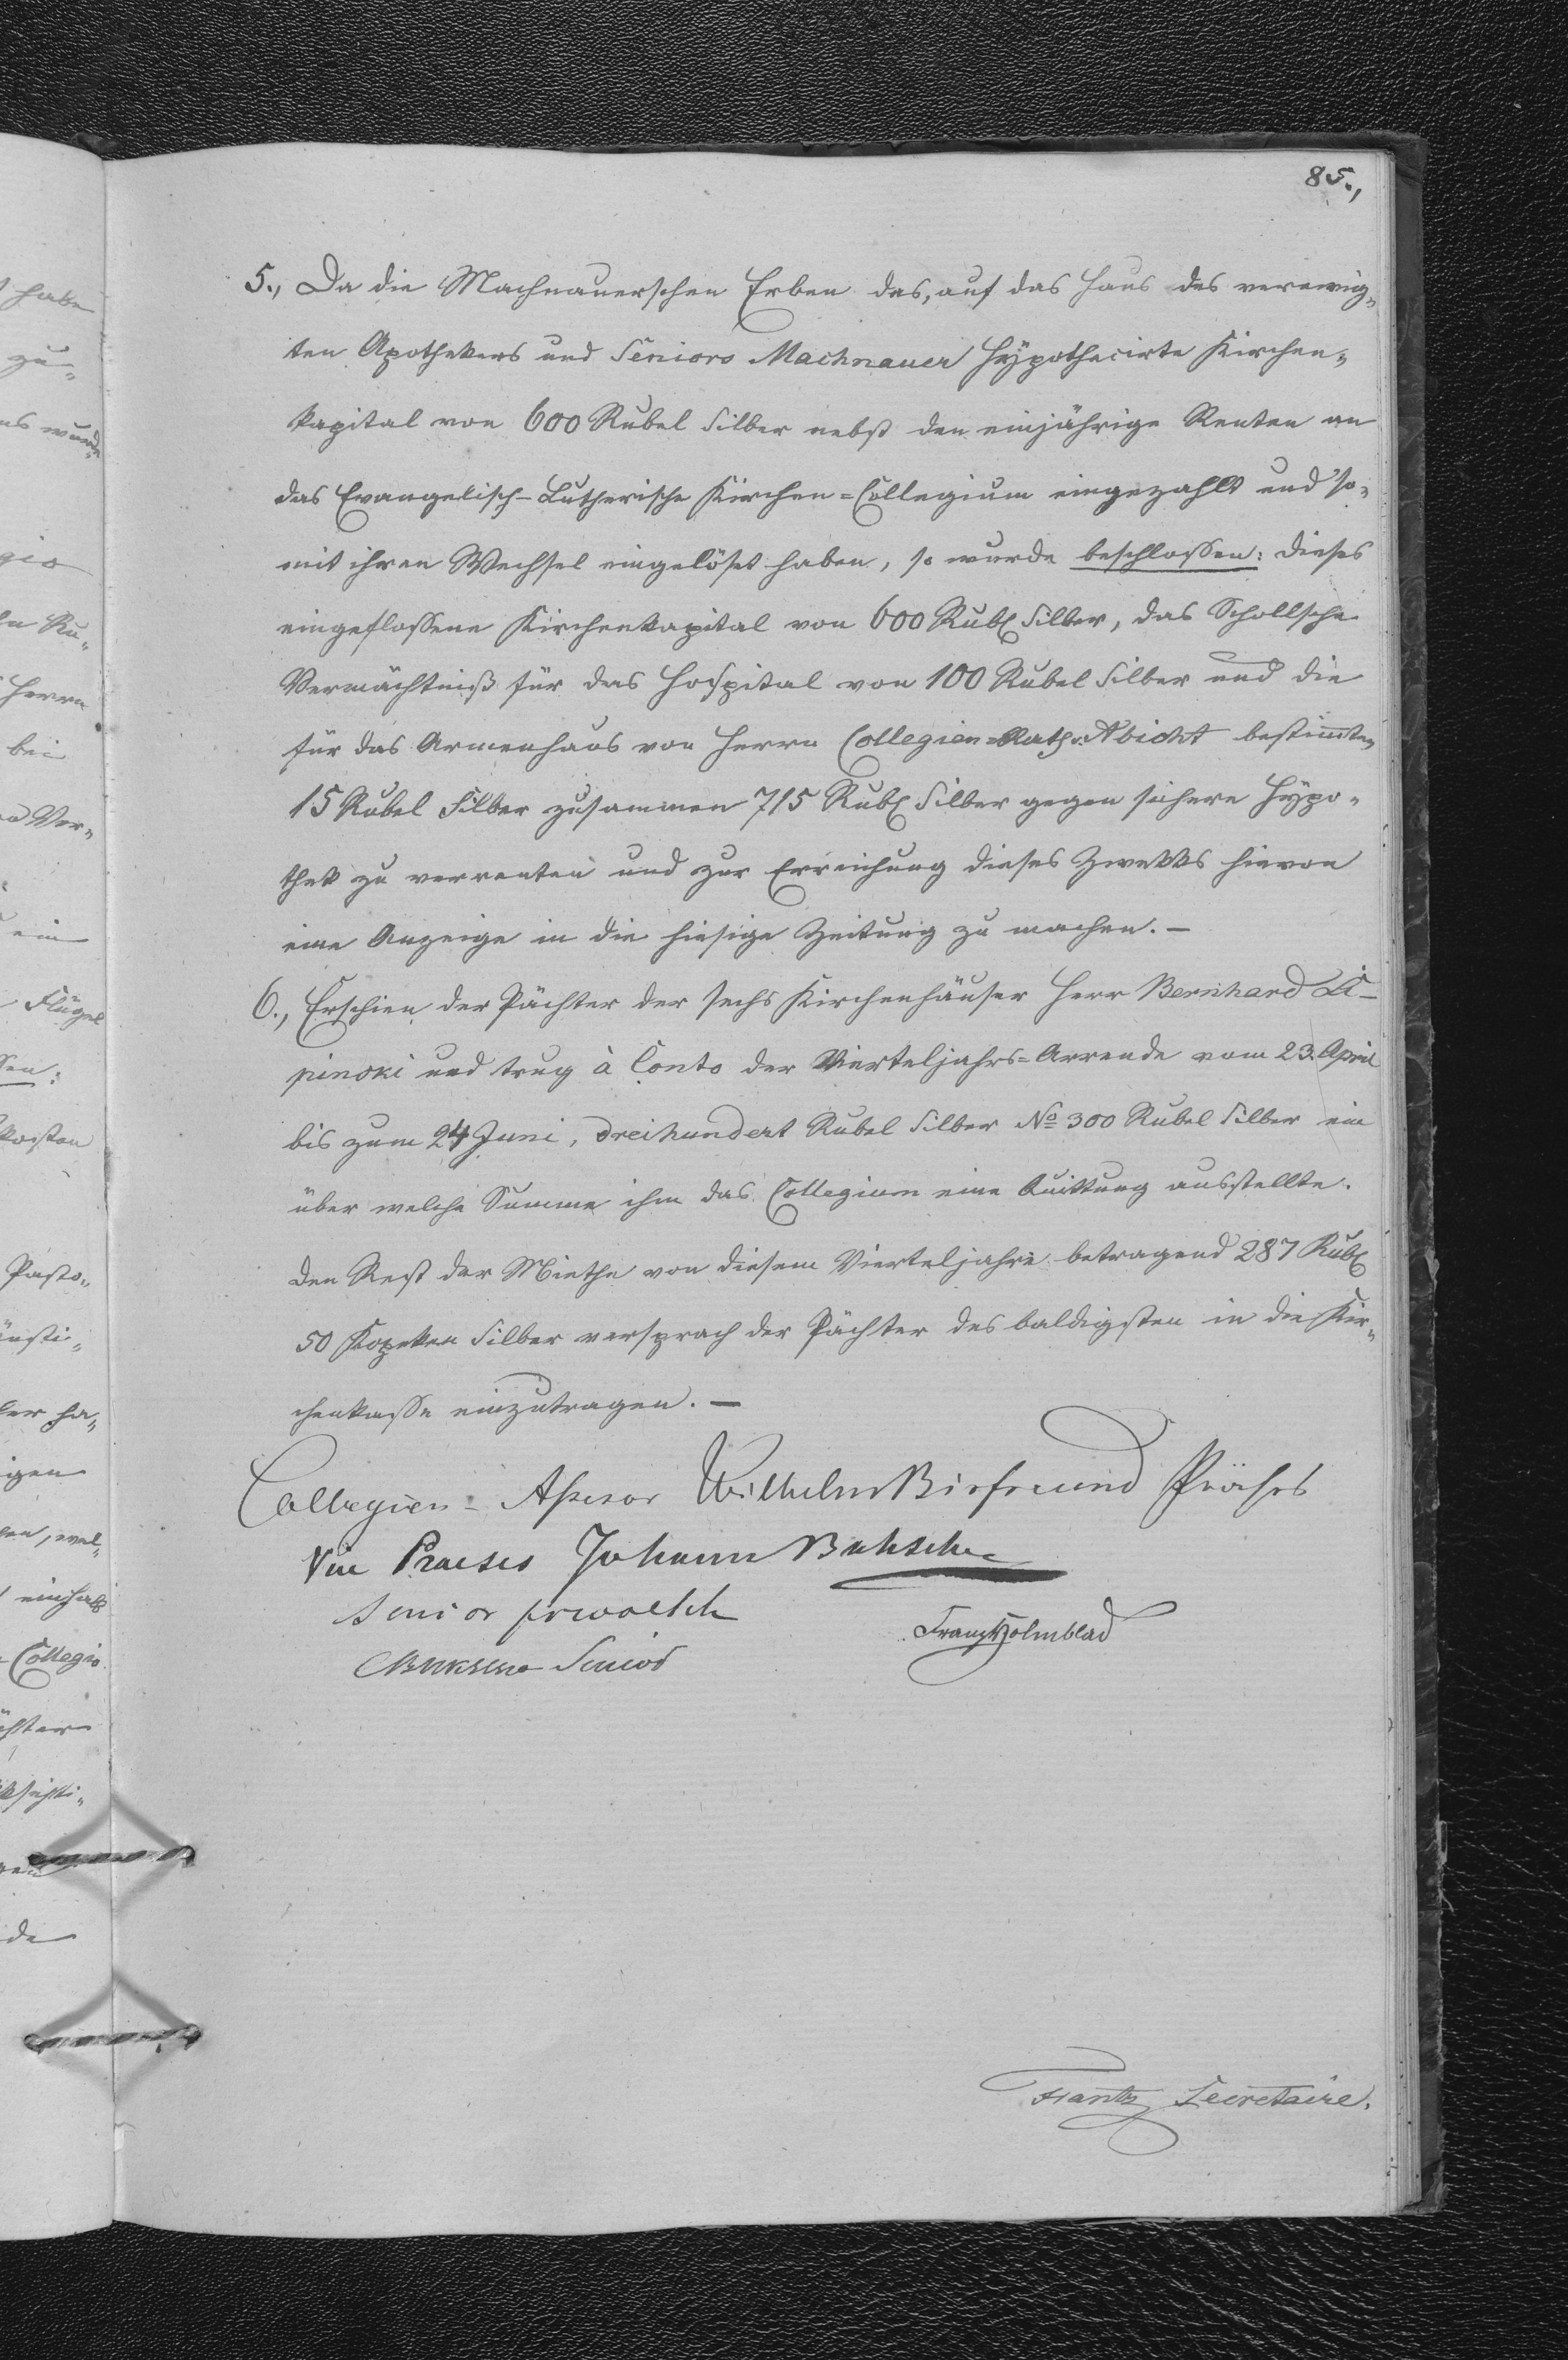 85.,
5., Da die Machnauerschen Erben das, auf das Haus des verewig„
ten Apothekers und Seniors Machnauer hÿpothecirte Kirchen„
kapital von 600 Rubel Silber nebst den einjährige Renten an
das Evangelisch-Lutherische Kirchen=Collegium eingezahlt und so„
mit ihren Wechsel eingelöset haben, so wurde beschlossen: dieses
eingeflossene Kirchenkapital von 600 Rub Silber, das Schollsche
Vermächtniß für das Hospital von 100 Rubel Silber und die
für das Armenhaus von Herrn Collegien=Rath v: Abicht bestimmten
15 Rubel Silber zusammen 715 Rub Silber gegen sichere Hÿpo„
thek zu verrenten und zur Erreichung dieses Zwekks hievon
eine Anzeige in die hiesige Zeitung zu machen. —
6., Erschien der Pächter der sechs Kirchenhäuser Herr Bernhard Li-
pinski und trug à Conto der Vierteljahrs=Arrende vom 23. April
bis zum 24 Juni, dreihundert Rubel Silber No 300 Rubel Silber ein
über welche Summe ihm das Collegium eine Quittung ausstellte.
Den Rest der Miethe von diesem Vierteljahre betragend 287 Rub
50 Kopeken Silber versprach der Pächter des baldigsten in die Kir„
chenkasse einzutragen. —
Collegien-Assesor Wilhelm Biefreund Präses
Vice Praeses Johann
Senior
Franz Holmblad
Senior
Frantz Secretaire.
habe
zu„
wurde
gio
Herrn
bei
Ver„
ein
Flügel
sen:
Pasto„
ha„
igen
wel„
Collegio
de